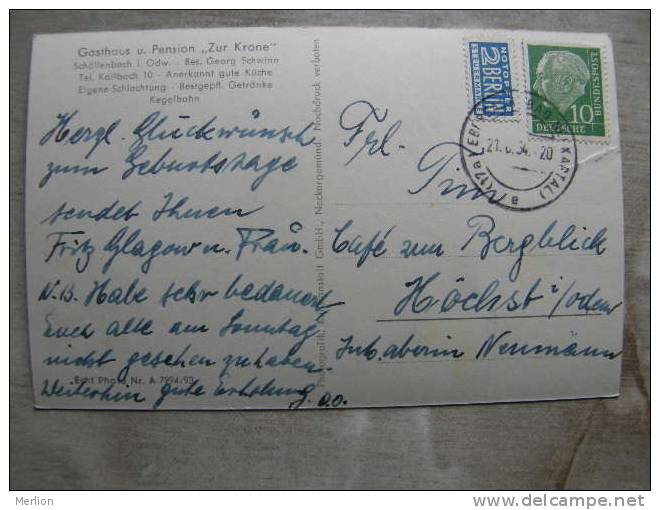 Gasthaus u. Pension „Zur Krone"
Schöllenbach i. Odw. - Bes. Georg Schwinn
Tel. Kailbach 10 - Anerkannt gute Küche
Eigene Schlachtung - Bestgepfl. Getränke
Kegelbahn
Herzl. Glückwünsch
zum Geburtstage
sendet Ihnen
Fritz Glagow u. Frau.
N.B. Habe sehr bedauert
Euch alle am Sonntag
nicht gesehen zu haben.
Weiterhin gute Erholung.
D.O.
Echt Photo Nr. A 7994/93
GmbH., Neckargemünd. Nachdruck verboten
NOTOPFER
2 BERLIN
STEUERMARKE
10
DEUTSCHE
BUNDESPOST
(17a)
21. 54. - 20
a
Frl.
Café zum Bergblick
Höchst i/odenw
Inhaberin Neumann
Merlion
www.delcampe.net